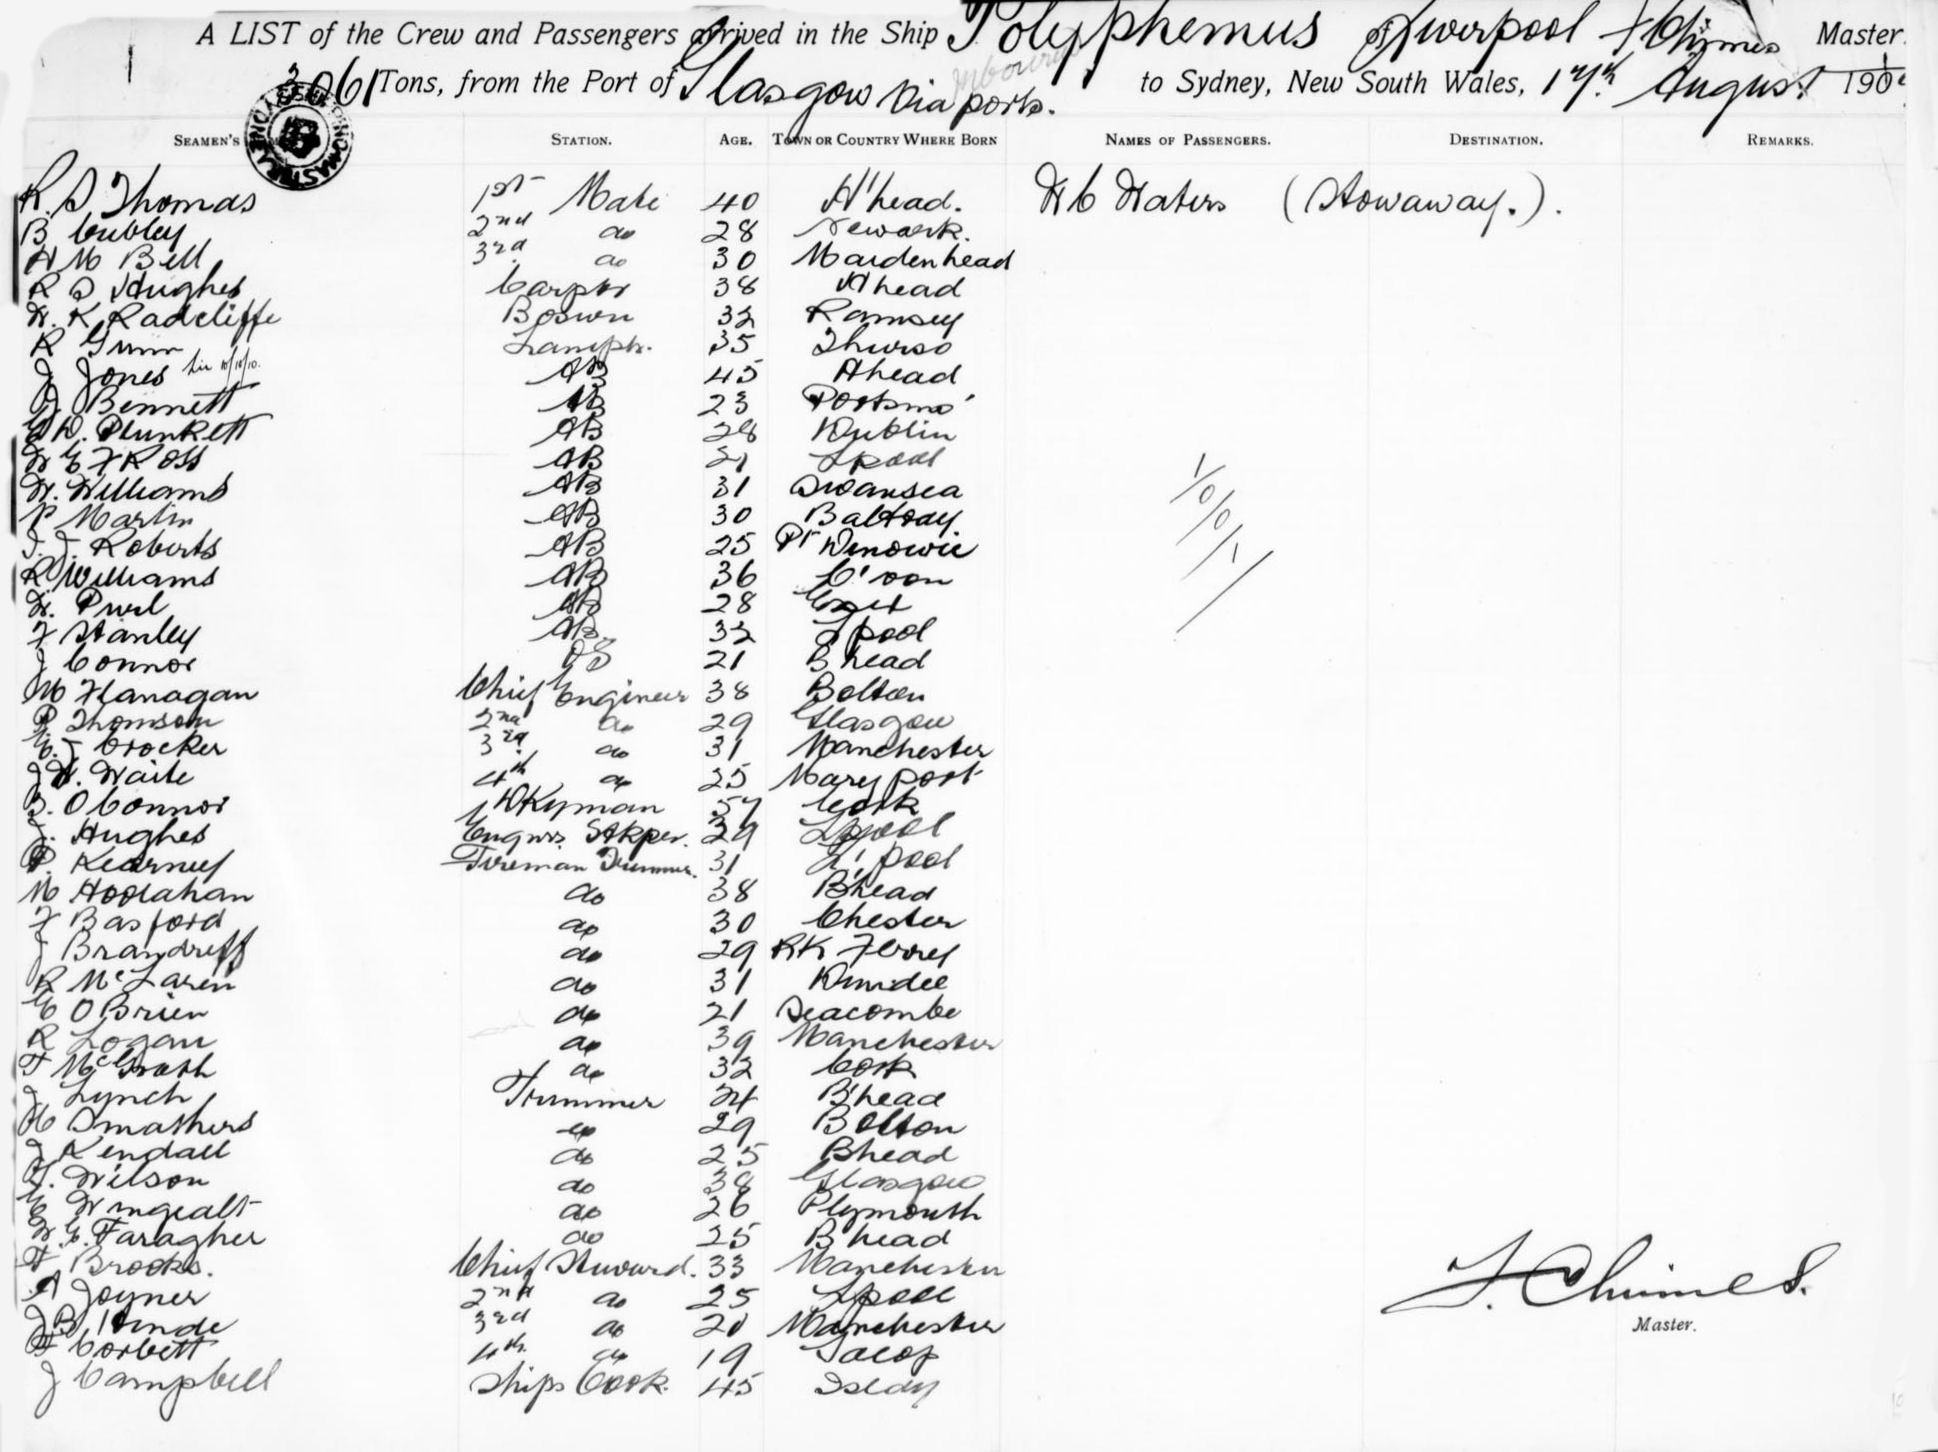 A LIST of the Crew and Passengers arrived in the Ship Polyphemus of Liverpool F Chimes Master.
3061 Tons, from the Port of Glasgow via ports. to Sydney, New South Wales, 17th August 190
SEAMEN'S STATION. AGE. TOWN OR COUNTRY WHERE BORN NAMES OF PASSENGERS. DESTINATION. REMARKS.
R. S Thomas 1st Mate 40 H'head. H C Waters (Stowaway.).
B Cubley 2nd do 28 Newark.
H M Bell 3rd do 30 Maidenhead
R S Hughes Carptr 38 Hhead
W. K Radcliffe Boswn 32 Ramsey
R Gunn Lamptr. 35 Thurso
J Jones AB 45 Ahead
J Bennett AB 23 Portsmo'
W. Plunkett AB 28 Dublin
W E F Ross AB 21 Lpool
W. Williams AB 31 Swansea
P Martin AB 30 Baltray
J. J. Roberts AB 25 Pt Dinowic
R Williams AB 36 C'von
W. AB 28
F Stanley AB 32 Lpool
J Connor OS 21 B head
M Flanagan Chief Engineer 38 Bolton
P Thomson 2nd do 29 Glasgow
E. J Crocker 3rd do 31 Manchester
J W. Waite 4th do 25 Maryport
B. OConnor DKyman 57 Cork
J. Hughes Engnrs Stkper. 29 Lpool
P. Kearney Fireman Trimmer. 31 L'pool
M Hoolahan do 38 B'head
F Basford do 30 Chester
J Brandreff do 29 RK Ferrey
R McLaren do 31 Dundee
E OBrien do 21 Seacombe
R Logan do 39 Manchester
F McGrath do 32 Cork
J Lynch Trimmer 24 B'head
H Smathers do 29 Bolton
J Kendall do 25 Bhead
T. Wilson do 38 Glasgow
E Wingealt do 26 Plymouth
W. E. Faragher do 25 B head
F Brooks. Chief Steward. 33 Manchester
A Joyner 2nd do 25 Lpool
J B Hinde 3rd do 20 Manchester
F Corbett 4th do 19
J Campbell Ships Cook. 45
F. Chimes.
Master.